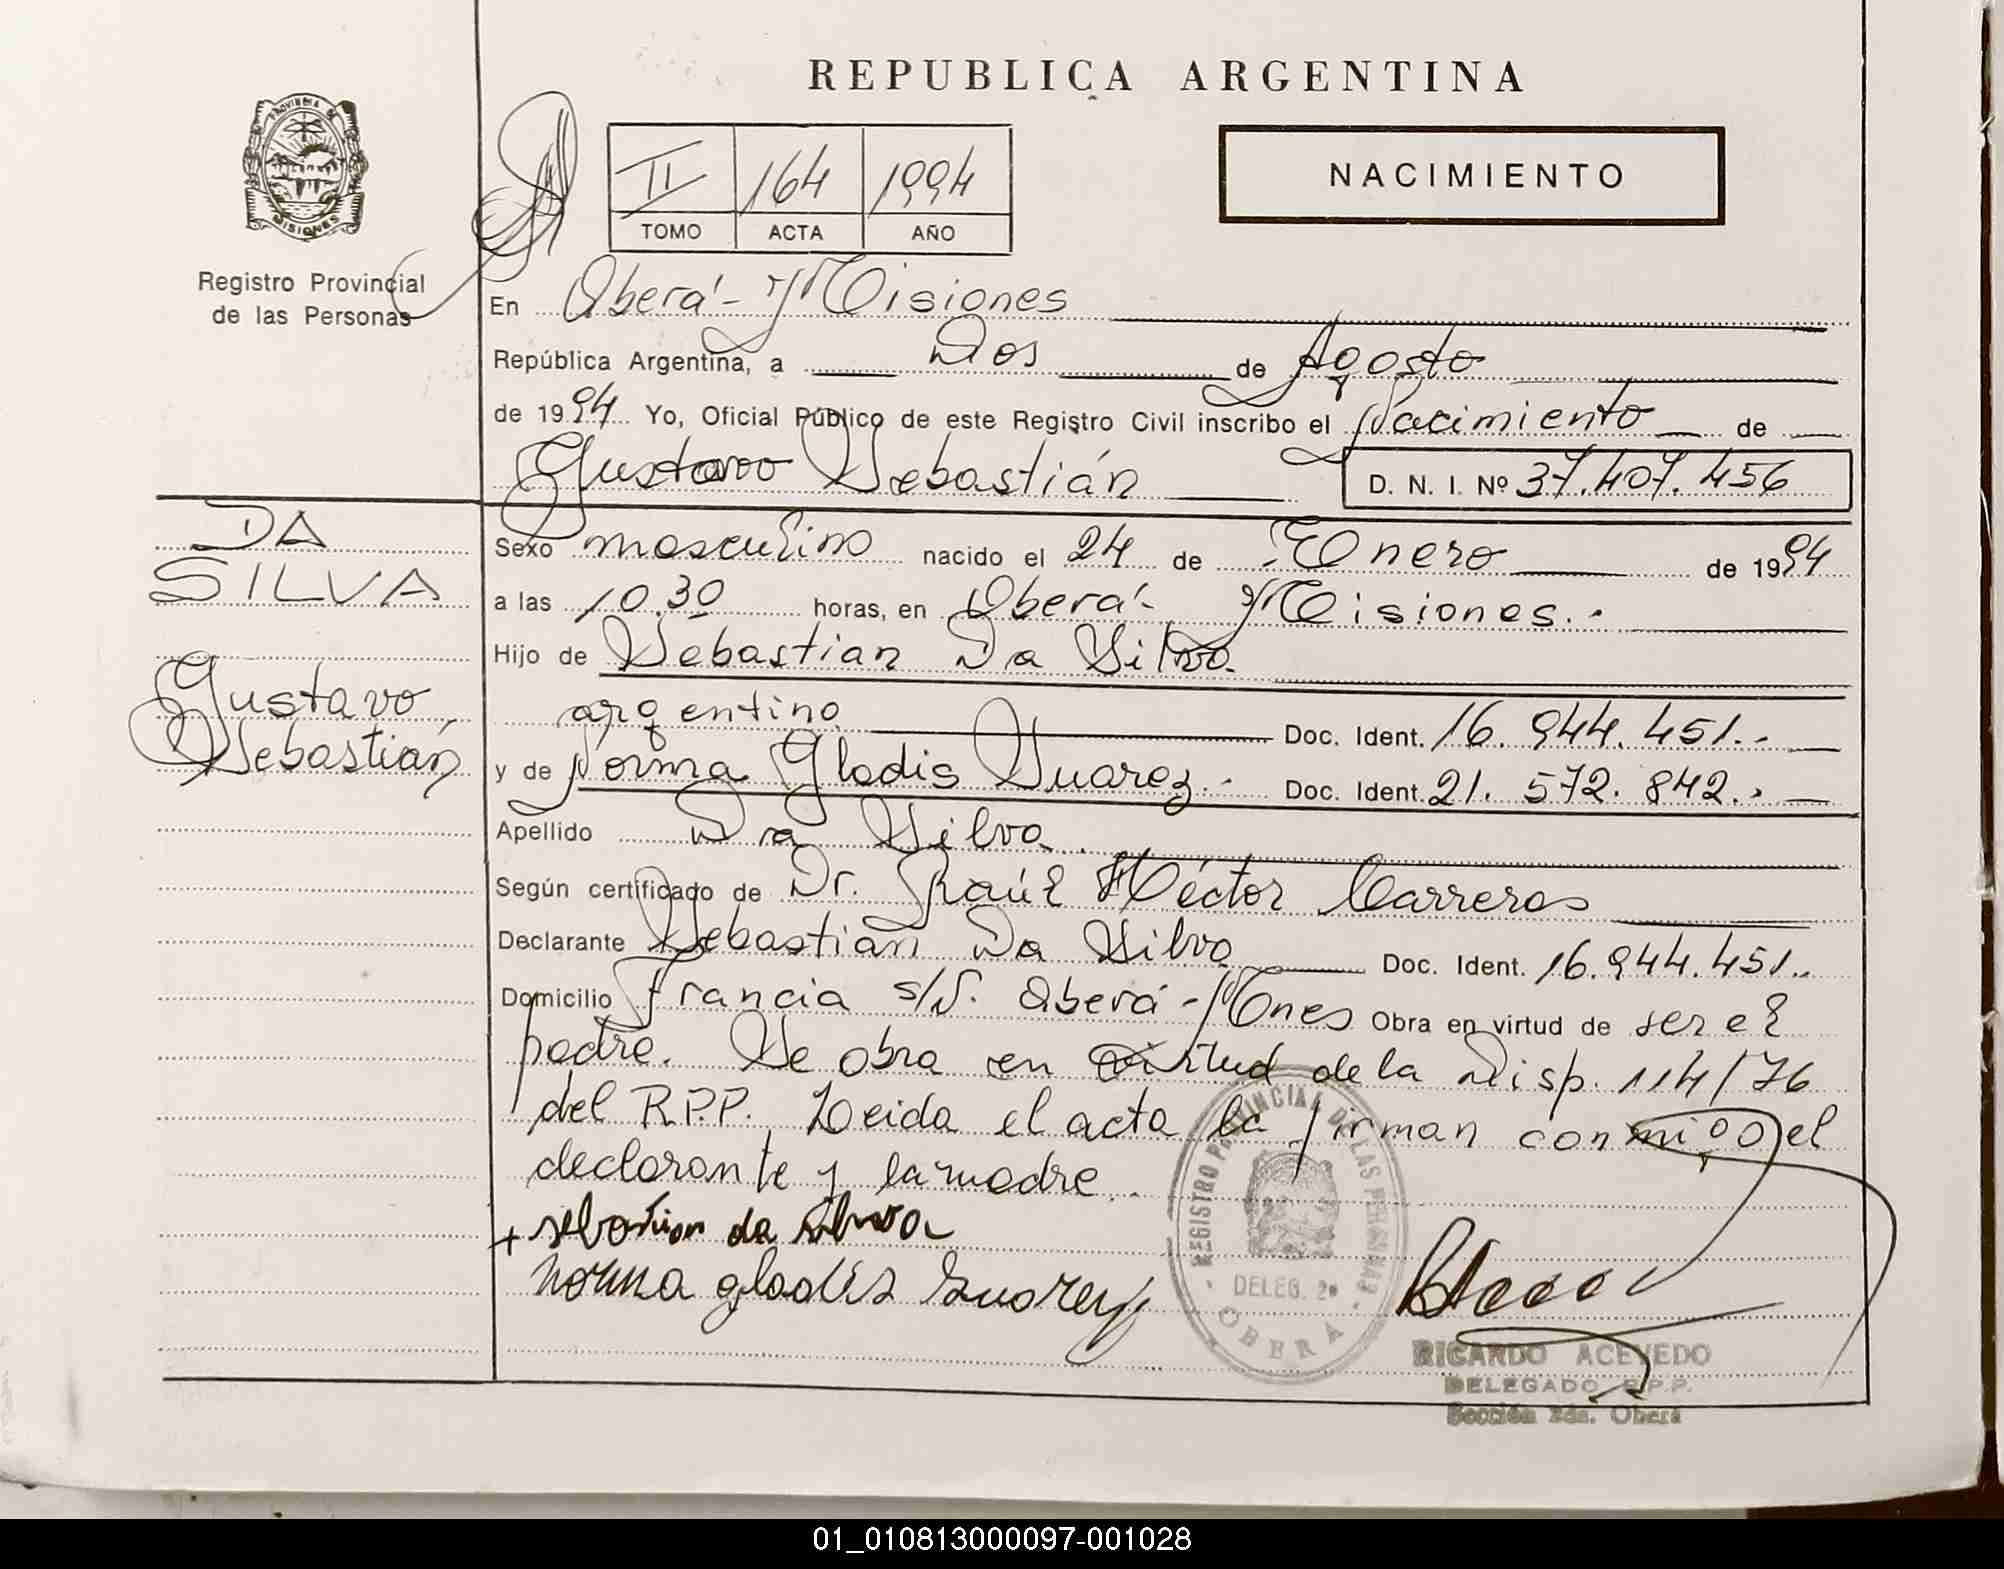 REPUBLICA ARGENTINA
PROVINCIA DE
MISIONES
Registro Provincial
de las Personas
II 164 1994
TOMO ACTA AÑO
NACIMIENTO
En Oberá - Misiones
República Argentina, a Dos de Agosto
de 1994 Yo, Oficial Público de este Registro Civil inscribo el Nacimiento de
Gustavo Sebastián D. N. I. Nº 37.407.456
DA
SILVA
Gustavo
Sebastián
Sexo masculino nacido el 24 de Enero de 1994
a las 10.30 horas, en Oberá - Misiones.-
Hijo de Sebastian Da Silva
argentino Doc. Ident. 16.944.451.-
y de Norma Gladis Suarez.- Doc. Ident. 21.572.842.-
Apellido Da Silva.
Según certificado de Dr. Raúl Héctor Carreras
Declarante Sebastian Da Silva Doc. Ident. 16.944.451.
Domicilio Francia s/N. Oberá - Mnes Obra en virtud de ser el
padre. Se obra en virtud de la Disp. 114/76
del R.P.P. Leida el acta la firman conmigo el
declarante y la madre.
+ sebastian da silva
norma gladis Suarez
REGISTRO PROVINCIAL DE LAS PERSONAS
DELEG. 2ª
OBERA
RICARDO ACEVEDO
DELEGADO R.P.P.
Sección 2da. Oberá
01_010813000097-001028